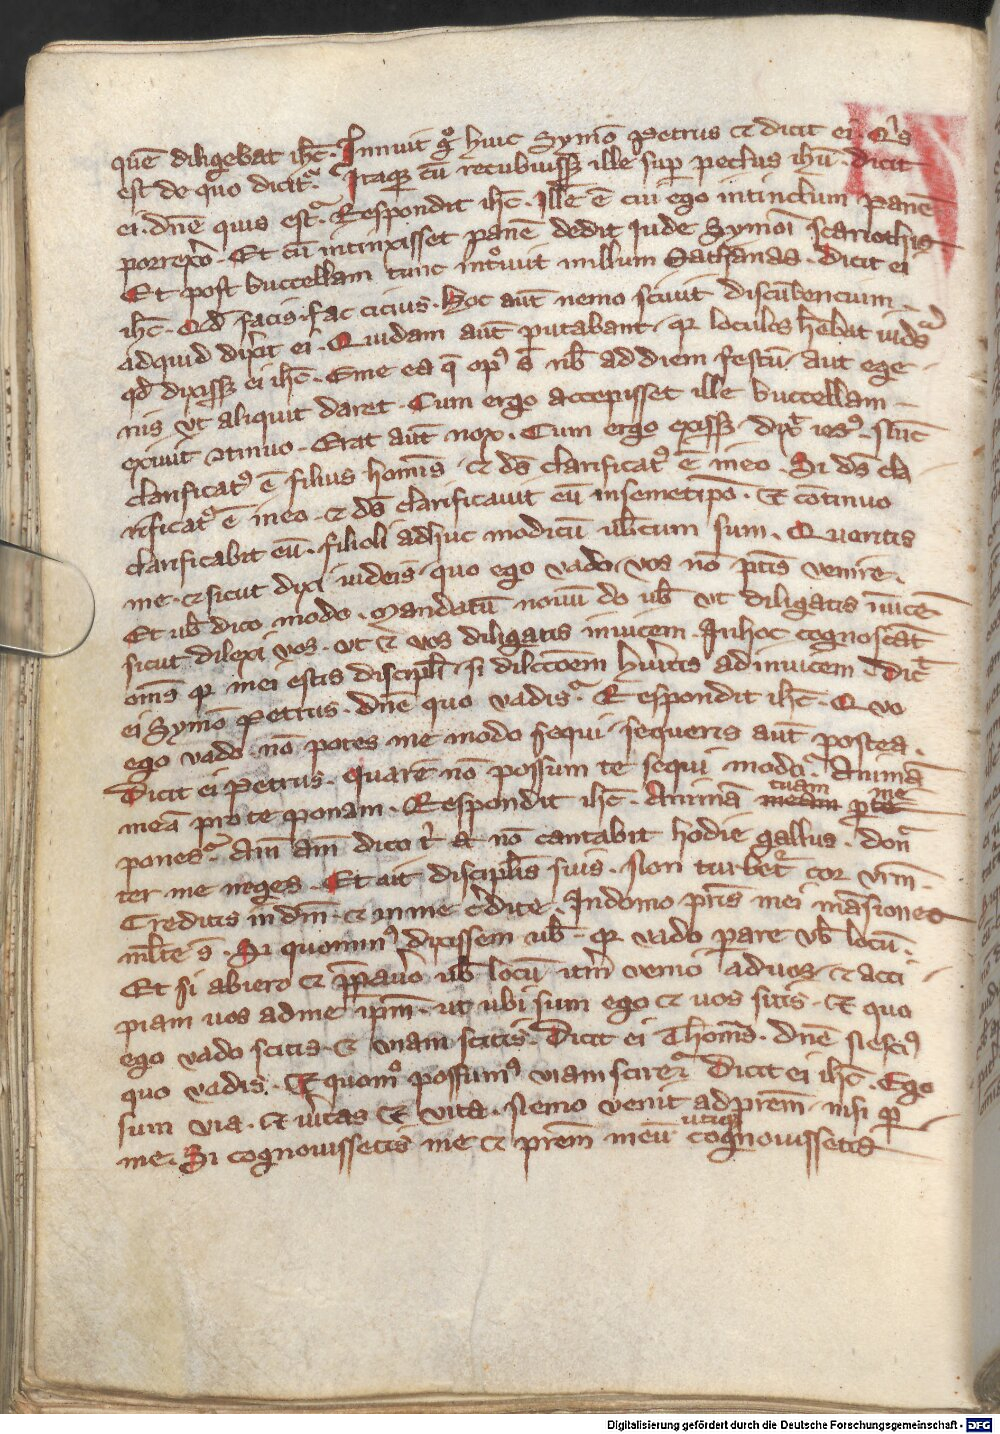 quē diligebat ihc̄. Innuit gͦ huic Symō Petrus et dicit ei. Qͥs
est de quo dicitᷣ. Itaqꝫ cū recubuissꝫ ille suꝑ pectus ihū. dicit
ei. dn̄e quis est. Respondit ihc̄. Ille ē cui ego intinctum panē
porrexͦo. Et cū intinxisset panē dedit Jude Symōi scariothis
Et post buccellam tunc intͦuit in illum Sathanas. Dicit ei
ihc̄. Qd̄ facis. fac cicius. Hoc aūt nemo sciuit discūbencium
adquid dixit ei. Quidam aūt putabant. qꝛ loculos hēbat iudas
qd̄ dixissꝫ ei ihc̄. Eme ea q̄ opꝰ s̄ nb̄ ad diem festū. aut ege
nis vt aliquit daret. Cum ergo accepisset ille buccellam
exiuit ↄtinuo. Erat aūt nox. Cum ergo exissꝫ. dixͭ iesꝰ. Nūc
clarificatꝰ ē filius homīs. et ds̄ clarificatꝰ ē in eo. Si ds̄ cla
rificatꝰ ē in eo. et ds̄ clarificauit eū in semetip̄o. Et cōtinuo
clarificabit eū. filioli adhuc modicū vb̄cum sum. Queritis
me. et sicut dixi iudeis. quo ego vado. vos nō p̄tis venire.
Et vb̄ dico modo. Mandatū nouū do vb̄ vt diligatis inuicē
sicut dilexi vos. vt et vos diligatis inuicem. In hoc cognoscāt
om̄s qꝛ mei estis discipl̄i. si dilcc̄oem hūitis adinuicem. Dicͭ
ei Symō Petrus. dn̄e quo vadis. Respondit ihc̄. Quo
ego vado. nō potes me modo sequi. sequeris aūt postea.
Dicit ei Petrus. quare nō possum te sequi modo. Animā
meā pro te ponam. Respondit ihc̄. Animā meam tuam ꝑ te me
pones. Am̄ am̄ dico tͥ nō cantabit hodie gallus. don̄
ter me neges. Et ait discipl̄is suis. Non turbetᷣ cor vr̄m.
Creditis in dm̄. et in me c̄dite. In domo pr̄is mei māsiones
ml̄te s̄. Si quominꝰ dixissem vb̄. qꝛ vado ꝑare vb̄ locū.
Et si abiero et p̄ꝑauͦo vb̄ locū. itm̄ venio ad uos. et acci
piam uos ad me ip̄m. ut ubi sum ego et uos sitis. Et quo
ego vado scitis. et viam scitis. Dicit ei Thomās. dn̄e nescimꝰ
quo vadis. Et quomͦ possumꝰ viam scire. Dicit ei ihc̄. Ego
sum via. et ūitas et vita. Nemo venit ad pr̄em. nisi ꝑ
me. Si cognouissetis me et pr̄em meū utiqꝫ cognouissetis
Digitalisierung gefördert durch die Deutsche Forschungsgemeinschaft - DFG